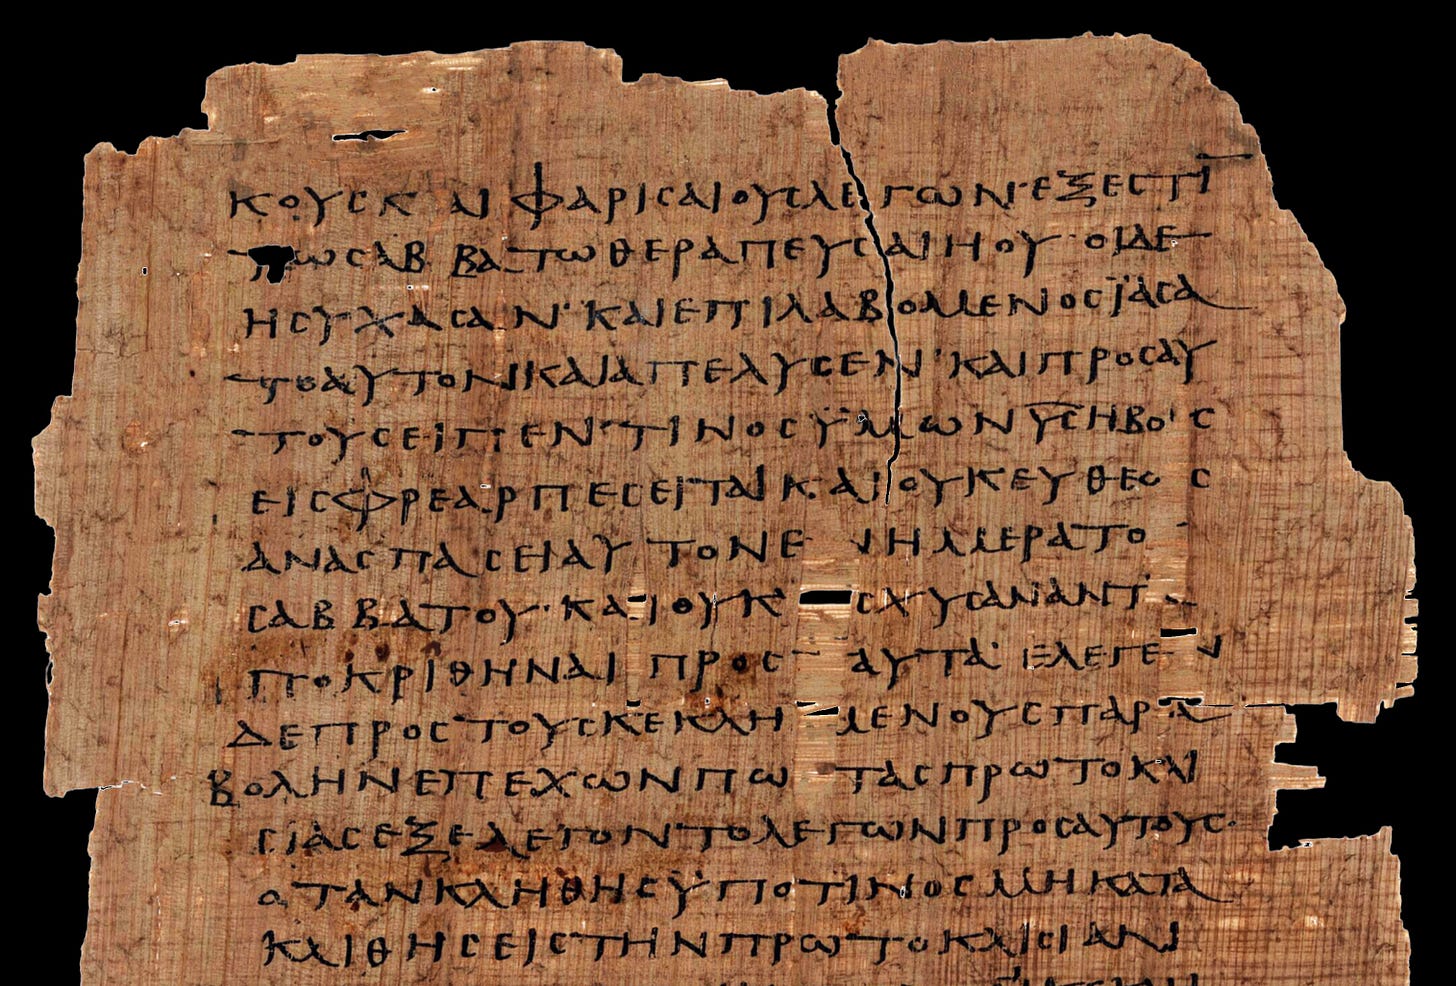 ΚΟΥϹΚΑΙΦΑΡΙϹΑΙΟΥϹΛΕΓΩΝ·ΕΞΕϹΤΙ̅
ΤΩϹΑΒΒΑΤΩΘΕΡΑΠΕΥϹΑΙΗΟΥ·ΟΙΔΕ
ΗϹΥΧΑϹΑΝ·ΚΑΙΕΠΙΛΑΒΟΜΕΝΟϹΪΑϹΑ
ΤΟΑΥΤΟΝΚΑΙΑΠΕΛΥϹΕΝ·ΚΑΙΠΡΟϹΑΥ
ΤΟΥϹΕΙΠΕΝ·ΤΙΝΟϹΫΜΩΝΥ̅Ϲ̅ΗΒΟΥϹ
ΕΙϹΦΡΕΑΡΠΕϹΕΙΤΑΙΚΑΙΟΥΚΕΥΘΕΩϹ
ΑΝΑϹΠΑϹΕΙΑΥΤΟΝΕΝΗΜΕΡΑΤΟΥ
ϹΑΒΒΑΤΟΥ·ΚΑΙΟΥΚΙϹΧΥϹΑΝΑΝΤΑ
ΠΟΚΡΙΘΗΝΑΙΠΡΟϹΤΑΥΤΑ·ΕΛΕΓΕΝ
ΔΕΠΡΟϹΤΟΥϹΚΕΚΛΗΜΕΝΟΥϹΠΑΡΑ
ΒΟΛΗΝΕΠΕΧΩΝΠΩϹΤΑϹΠΡΩΤΟΚΛΙ
ϹΙΑϹΕΞΕΛΕΓΟΝΤΟΛΕΓΩΝΠΡΟϹΑΥΤΟΥϹ·
ΟΤΑΝΚΛΗΘΗϹΫΠΟΤΙΝΟϹΜΗΚΑΤΑ
ΚΛΙΘΗϹΕΙϹΤΗΝΠΡΩΤΟΚΛΙϹΙΑΝ